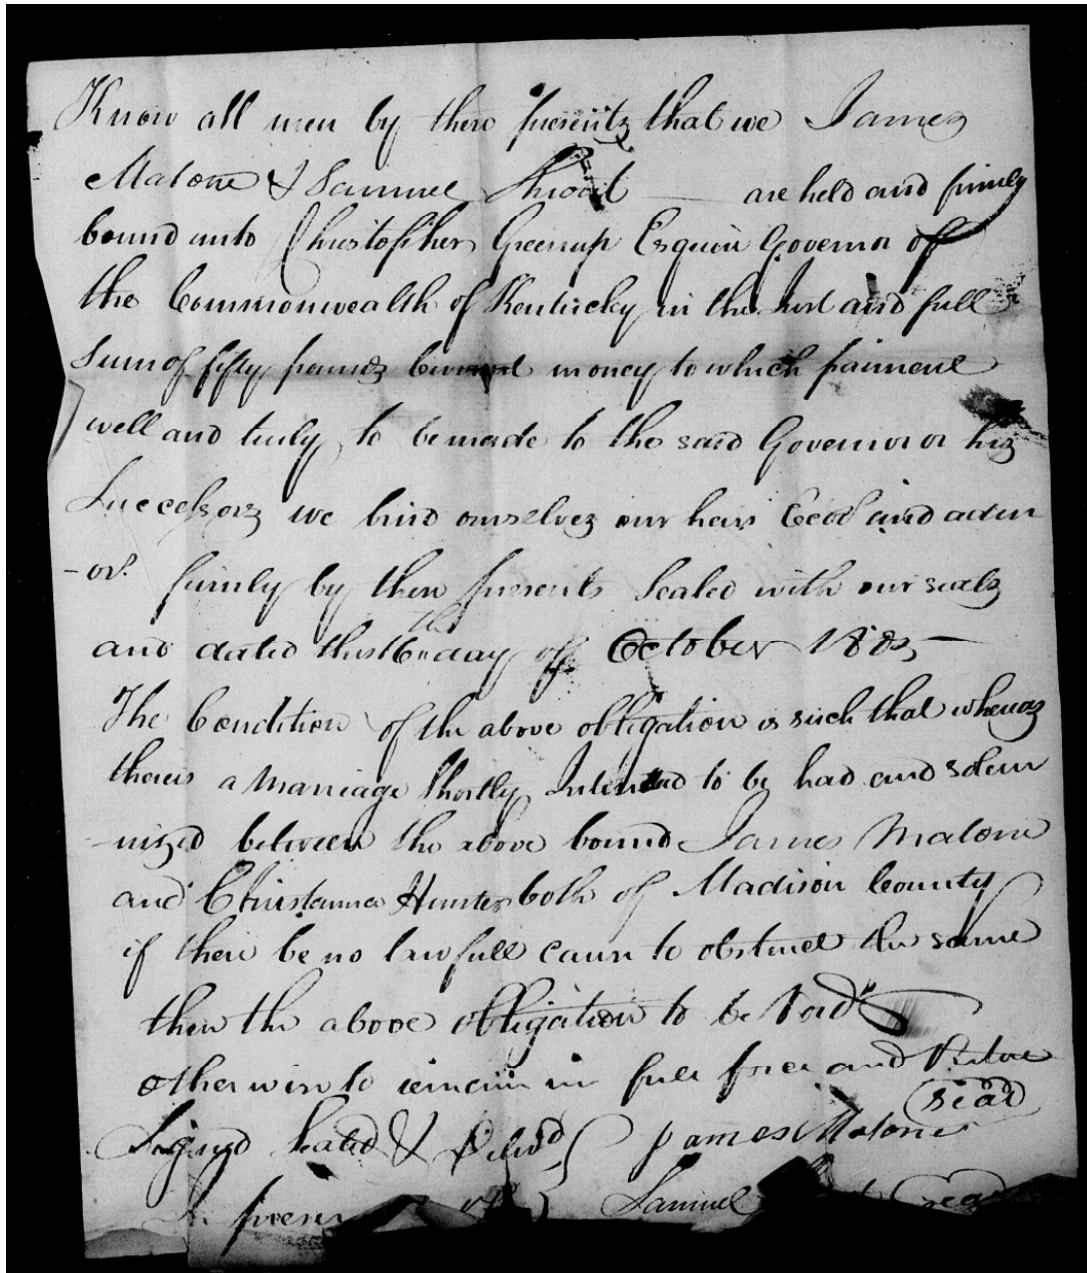 Know all men by these presents that we James
Malone & Samuel are held and firmly
bound unto Christopher Greenup Esquire Governor of
the Commonwealth of Kentucky in the Just and full
Sum of fifty pounds Current money to which paiment
well and truly to be made to the said Governor or his
Successors we bind ourselves our heirs Exors and admin
-ors. firmly by these presents Sealed with our seals
and dated this day of October 1805
The Condition of the above obligation is such that whereas
there is a Marriage Shortly Intended to be had and solem
-nized between the above bound James Malone
and Christianna Hunter both of Madison County
if there be no lawfull cause to obstruct the same
then the above obligation to be Void
otherwise to remain in full force and Virtue
Signed Sealed & Delivd James Malone seal
In presen Samuel seal